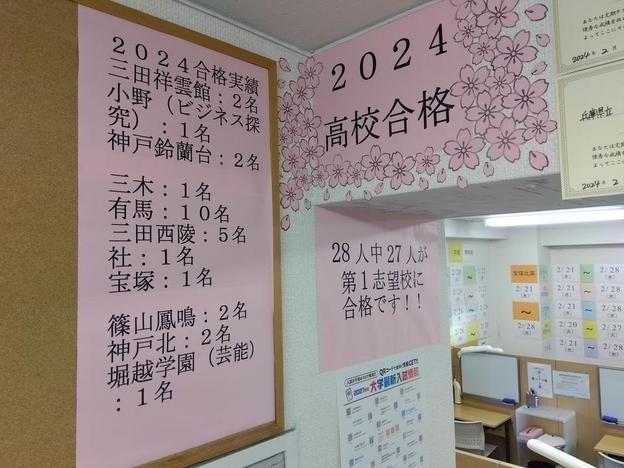 2024合格実績
三田祥雲館：2名
小野（ビジネス探
究）：1名
神戸鈴蘭台：2名
三木：1名
有馬：10名
三田西陵：5名
社：1名
宝塚：1名
篠山鳳鳴：2名
神戸北：2名
堀越学園（芸能）
：1名
2024
高校合格
28人中27人が
第1志望校に
合格です！！
QRコードで
大学最新入試情報
兵庫県立
2024年2月
2024年2
宝塚北高
2/21
～
2/28
2/21
～
2/28
2/21
～
2/28
2/20
～
2/27
2/21
～
2/28